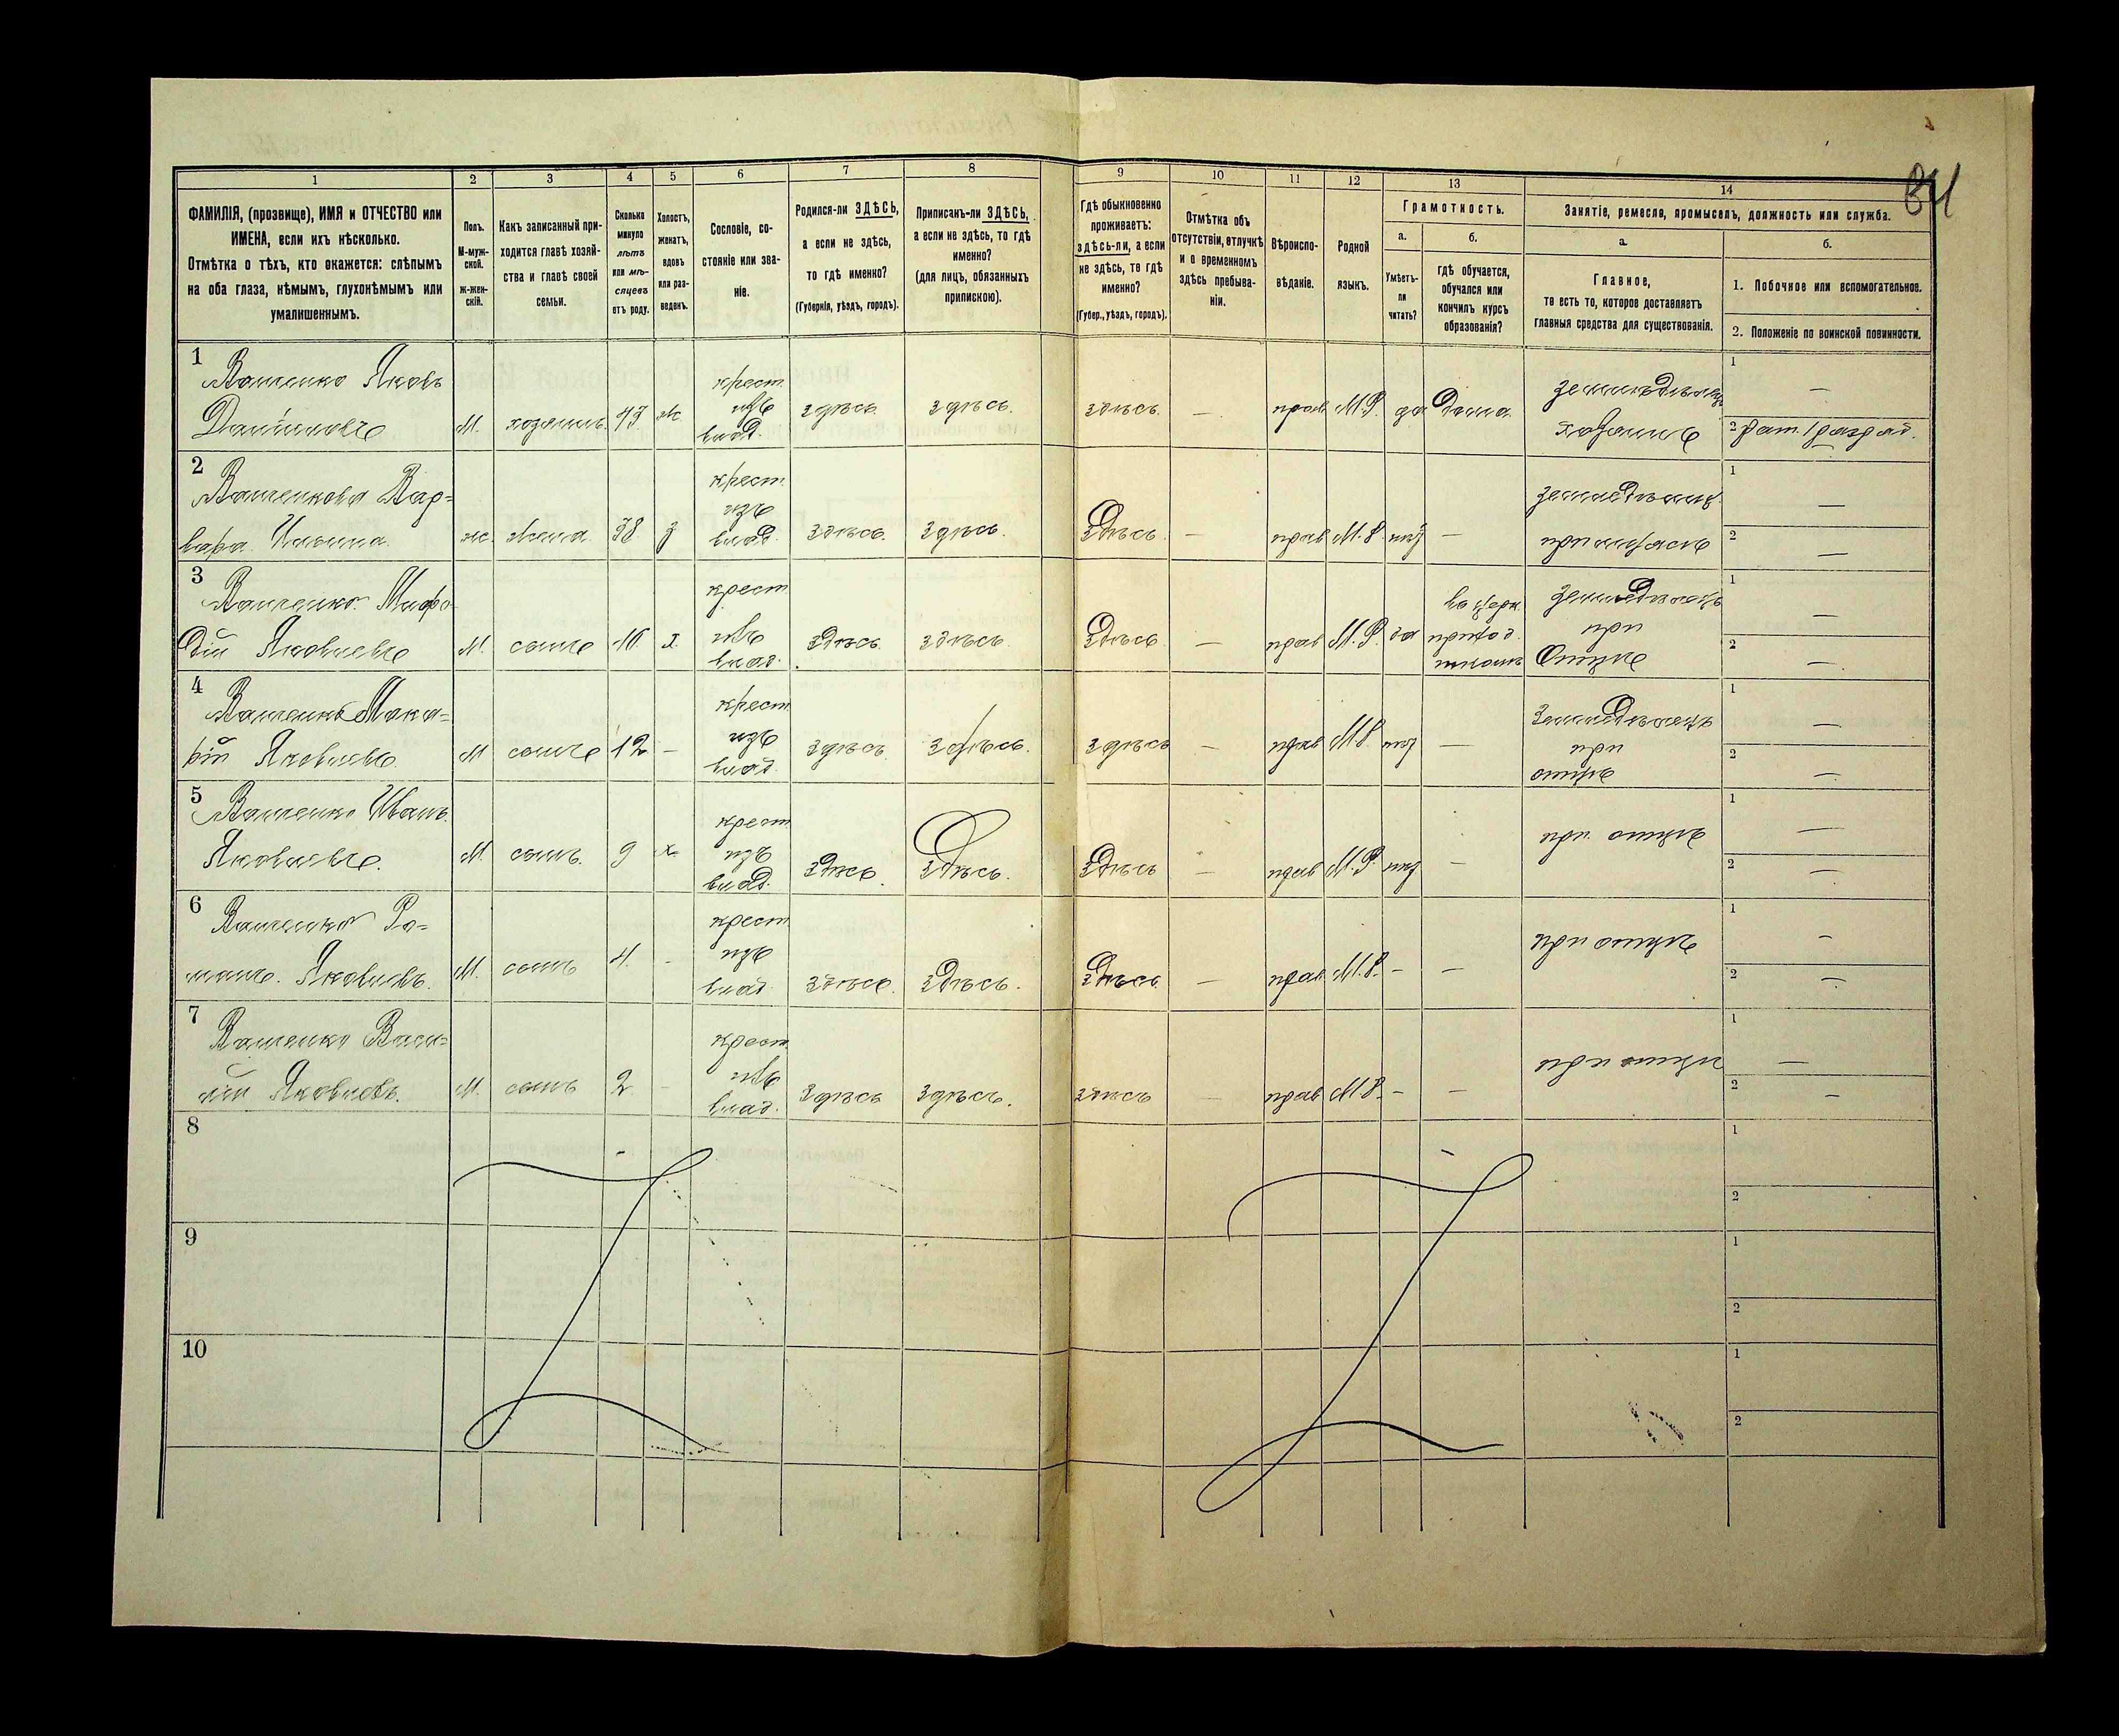 84
1 2 3 4 5 6 7 8 9 10 11 12 13 14
ФАМИЛІЯ, (прозвище), ИМЯ и ОТЧЕСТВО или
ИМЕНА, если ихъ нѣсколько.
Отмѣтка о тѣхъ, кто окажется: слѣпымъ
на оба глаза, нѣмымъ, глухонѣмымъ или
умалишеннымъ.
Полъ.
М-муж-
ской.
ж-жен-
скій.
Какъ записанный при-
ходится главѣ хозяй-
ства и главѣ своей
семьи.
Сколько
минуло
лѣтъ
или мѣ-
сяцевъ
отъ роду.
Холостъ,
женатъ,
вдовъ
или раз-
веденъ.
Сословіе, со-
стояніе или зва-
ніе.
Родился-ли ЗДѢСЬ,
а если не здѣсь,
то гдѣ именно?
(Губернія, уѣздъ, городъ).
Приписанъ-ли ЗДѢСЬ,
а если не здѣсь, то гдѣ
именно?
(для лицъ, обязанныхъ
припискою).
Гдѣ обыкновенно
проживаетъ:
здѣсь-ли, а если
не здѣсь, то гдѣ
именно?
(Губер., уѣздъ, городъ).
Отмѣтка объ
отсутствіи, отлучкѣ
и о временномъ
здѣсь пребыва-
ніи.
Вѣроиспо-
вѣданіе.
Родной
языкъ.
Грамотность.
а.
Умѣетъ-
ли
читать?
б.
гдѣ обучается,
обучался или
кончилъ курсъ
образованія?
Занятіе, ремесло, промыселъ, должность или служба.
а.
Главное,
то есть то, которое доставляетъ
главныя средства для существованія.
б.
1. Побочное или вспомогательное.
2. Положеніе по воинской повинности.
1 Ващенко Яковъ
Даниловъ
М. хозяинъ 43 ж
крест.
изъ
влад.
здѣсь здѣсь. здѣсь. — прав М.Р. да дома.
земледѣлецъ
хозяинъ
1 —
2 рат. 1 разряд.
2 Ващенкова Вар=
вара Ильина.
ж. жена. 38 з
крест.
изъ
влад.
здѣсь. здѣсь. здѣсь — прав М.Р. —
земледѣлец.
1 —
2 —
3 Ващенко Мефо-
дій Яковлевъ
М. сынъ 16. х.
крест.
изъ
влад.
здѣсь. здѣсь. здѣсь — прав М.Р. да
приход.
школѣ
земледѣлецъ
при
отцѣ
1 —
2 —
4 Ващенко Мака=
рій Яковлевъ
М сынъ 12 —
крест.
изъ
влад.
здѣсь здѣсь. здѣсь — прав М.Р. —
земледѣлецъ
при
отцѣ
1 —
2 —
5 Ващенко Иванъ
Яковлевъ.
М. сынъ. 9 х.
крест.
изъ
влад.
здѣсь. здѣсь. здѣсь — прав М.Р. —
при отцѣ
1 —
2 —
6 Ващенко Ро=
манъ. Яковлевъ.
М. сынъ 4. -
крест.
изъ
влад.
здѣсь. здѣсь. здѣсь — прав М.Р. - —
при отцѣ
1 —
2 —
7 Ващенко Васи=
лій Яковлевъ.
М. сынъ 2. -
крест.
изъ
влад.
здѣсь здѣсь. здѣсь — прав М.Р. - —
при отцѣ
1 —
2 —
8
1
2
9
1
2
10
1
2